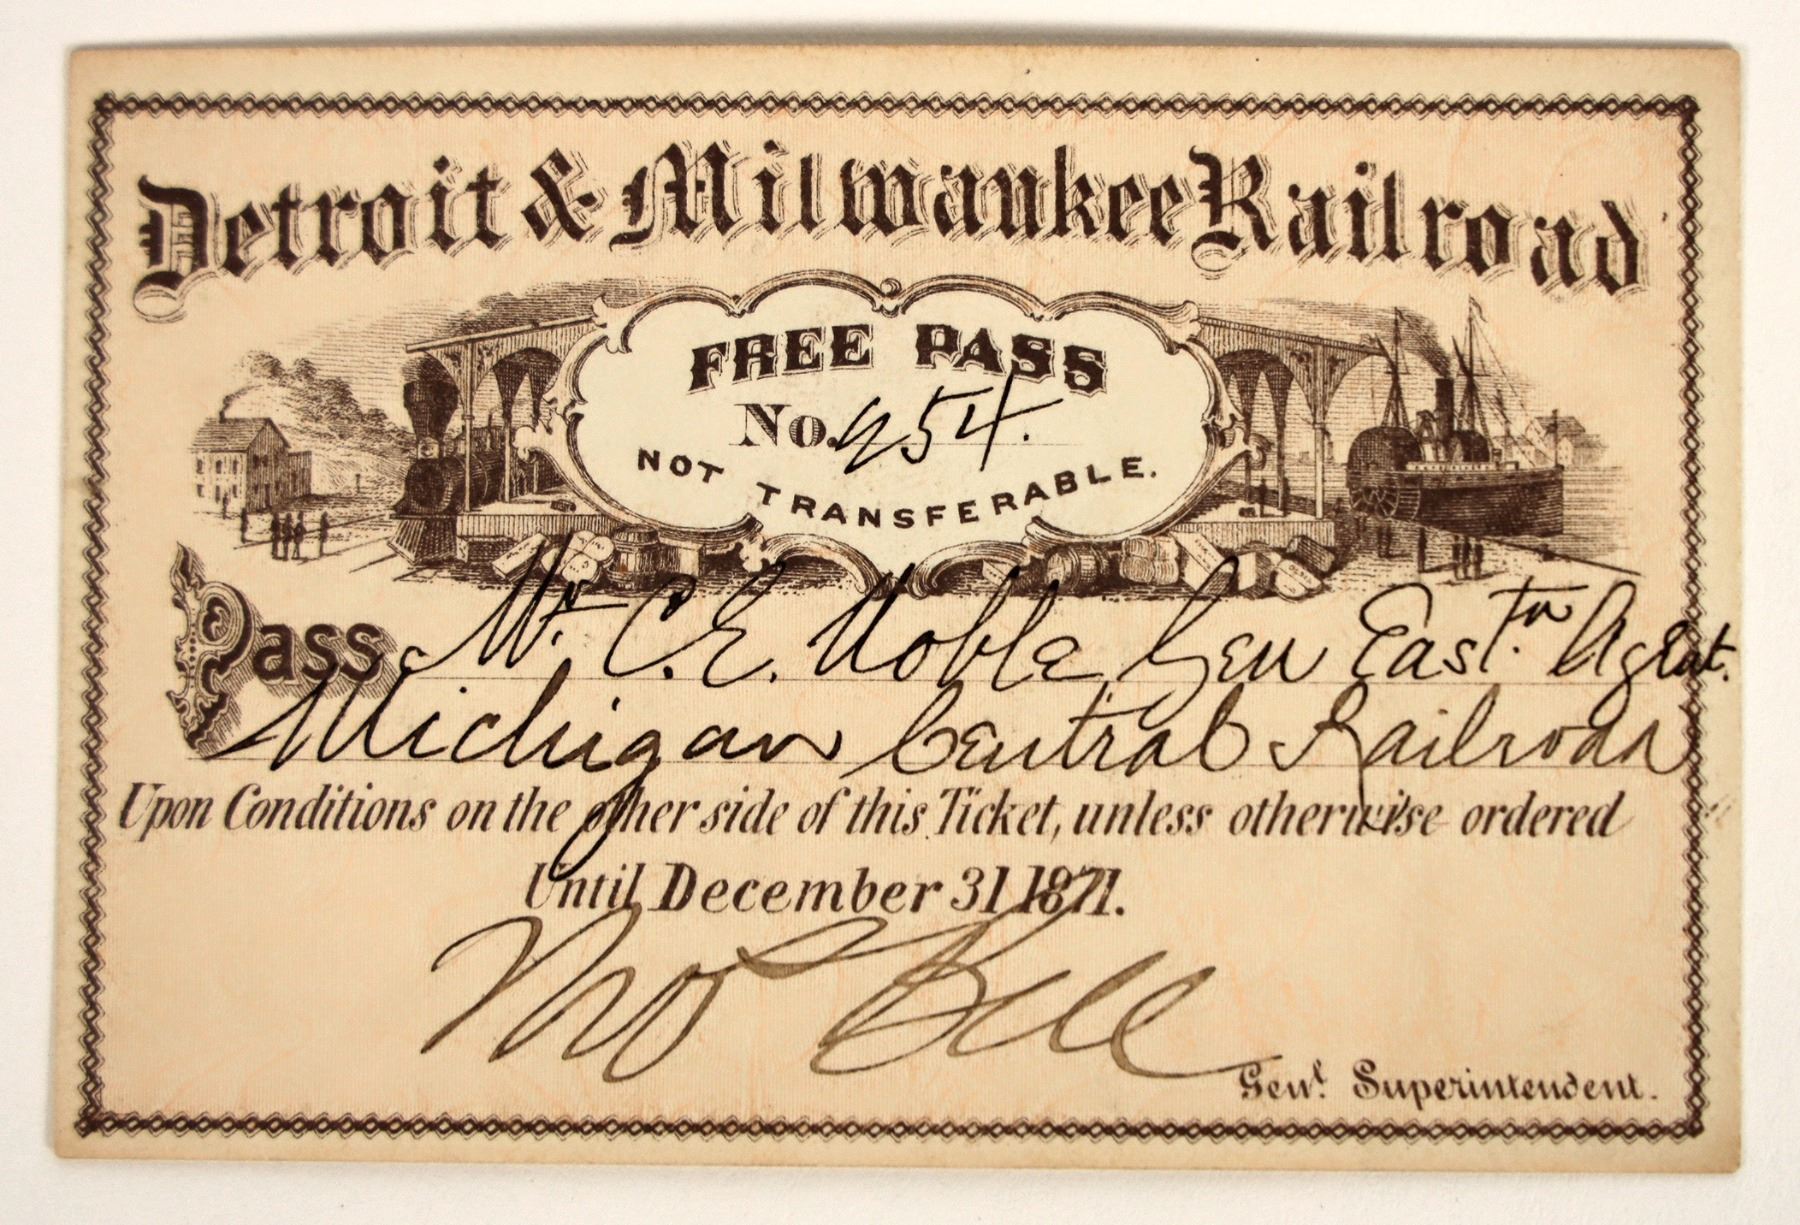 Detroit & Milwaukee Railroad
FREE PASS
No. 954.
NOT TRANSFERABLE.
Pass Mr. C. E. Noble Gen East.rn Agent.
Michigan Central Railroad
Upon Conditions on the other side of this Ticket, unless otherwise ordered
Until December 31 1871.
Thos Bell
Genl. Superintendent.